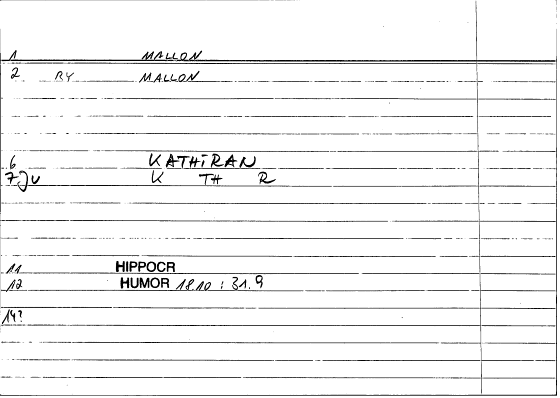 1 MALLON
2 RY MALLON
6 KATHiRAN
7 JU K TH R
11 HIPPOCR
12 HUMOR 18.10 : 31.9
14?